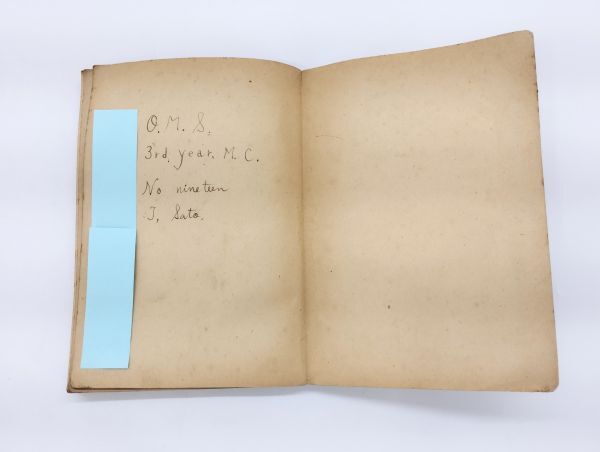 O. M. S.
3rd. year. M. C.
No nineteen
J. Sato.